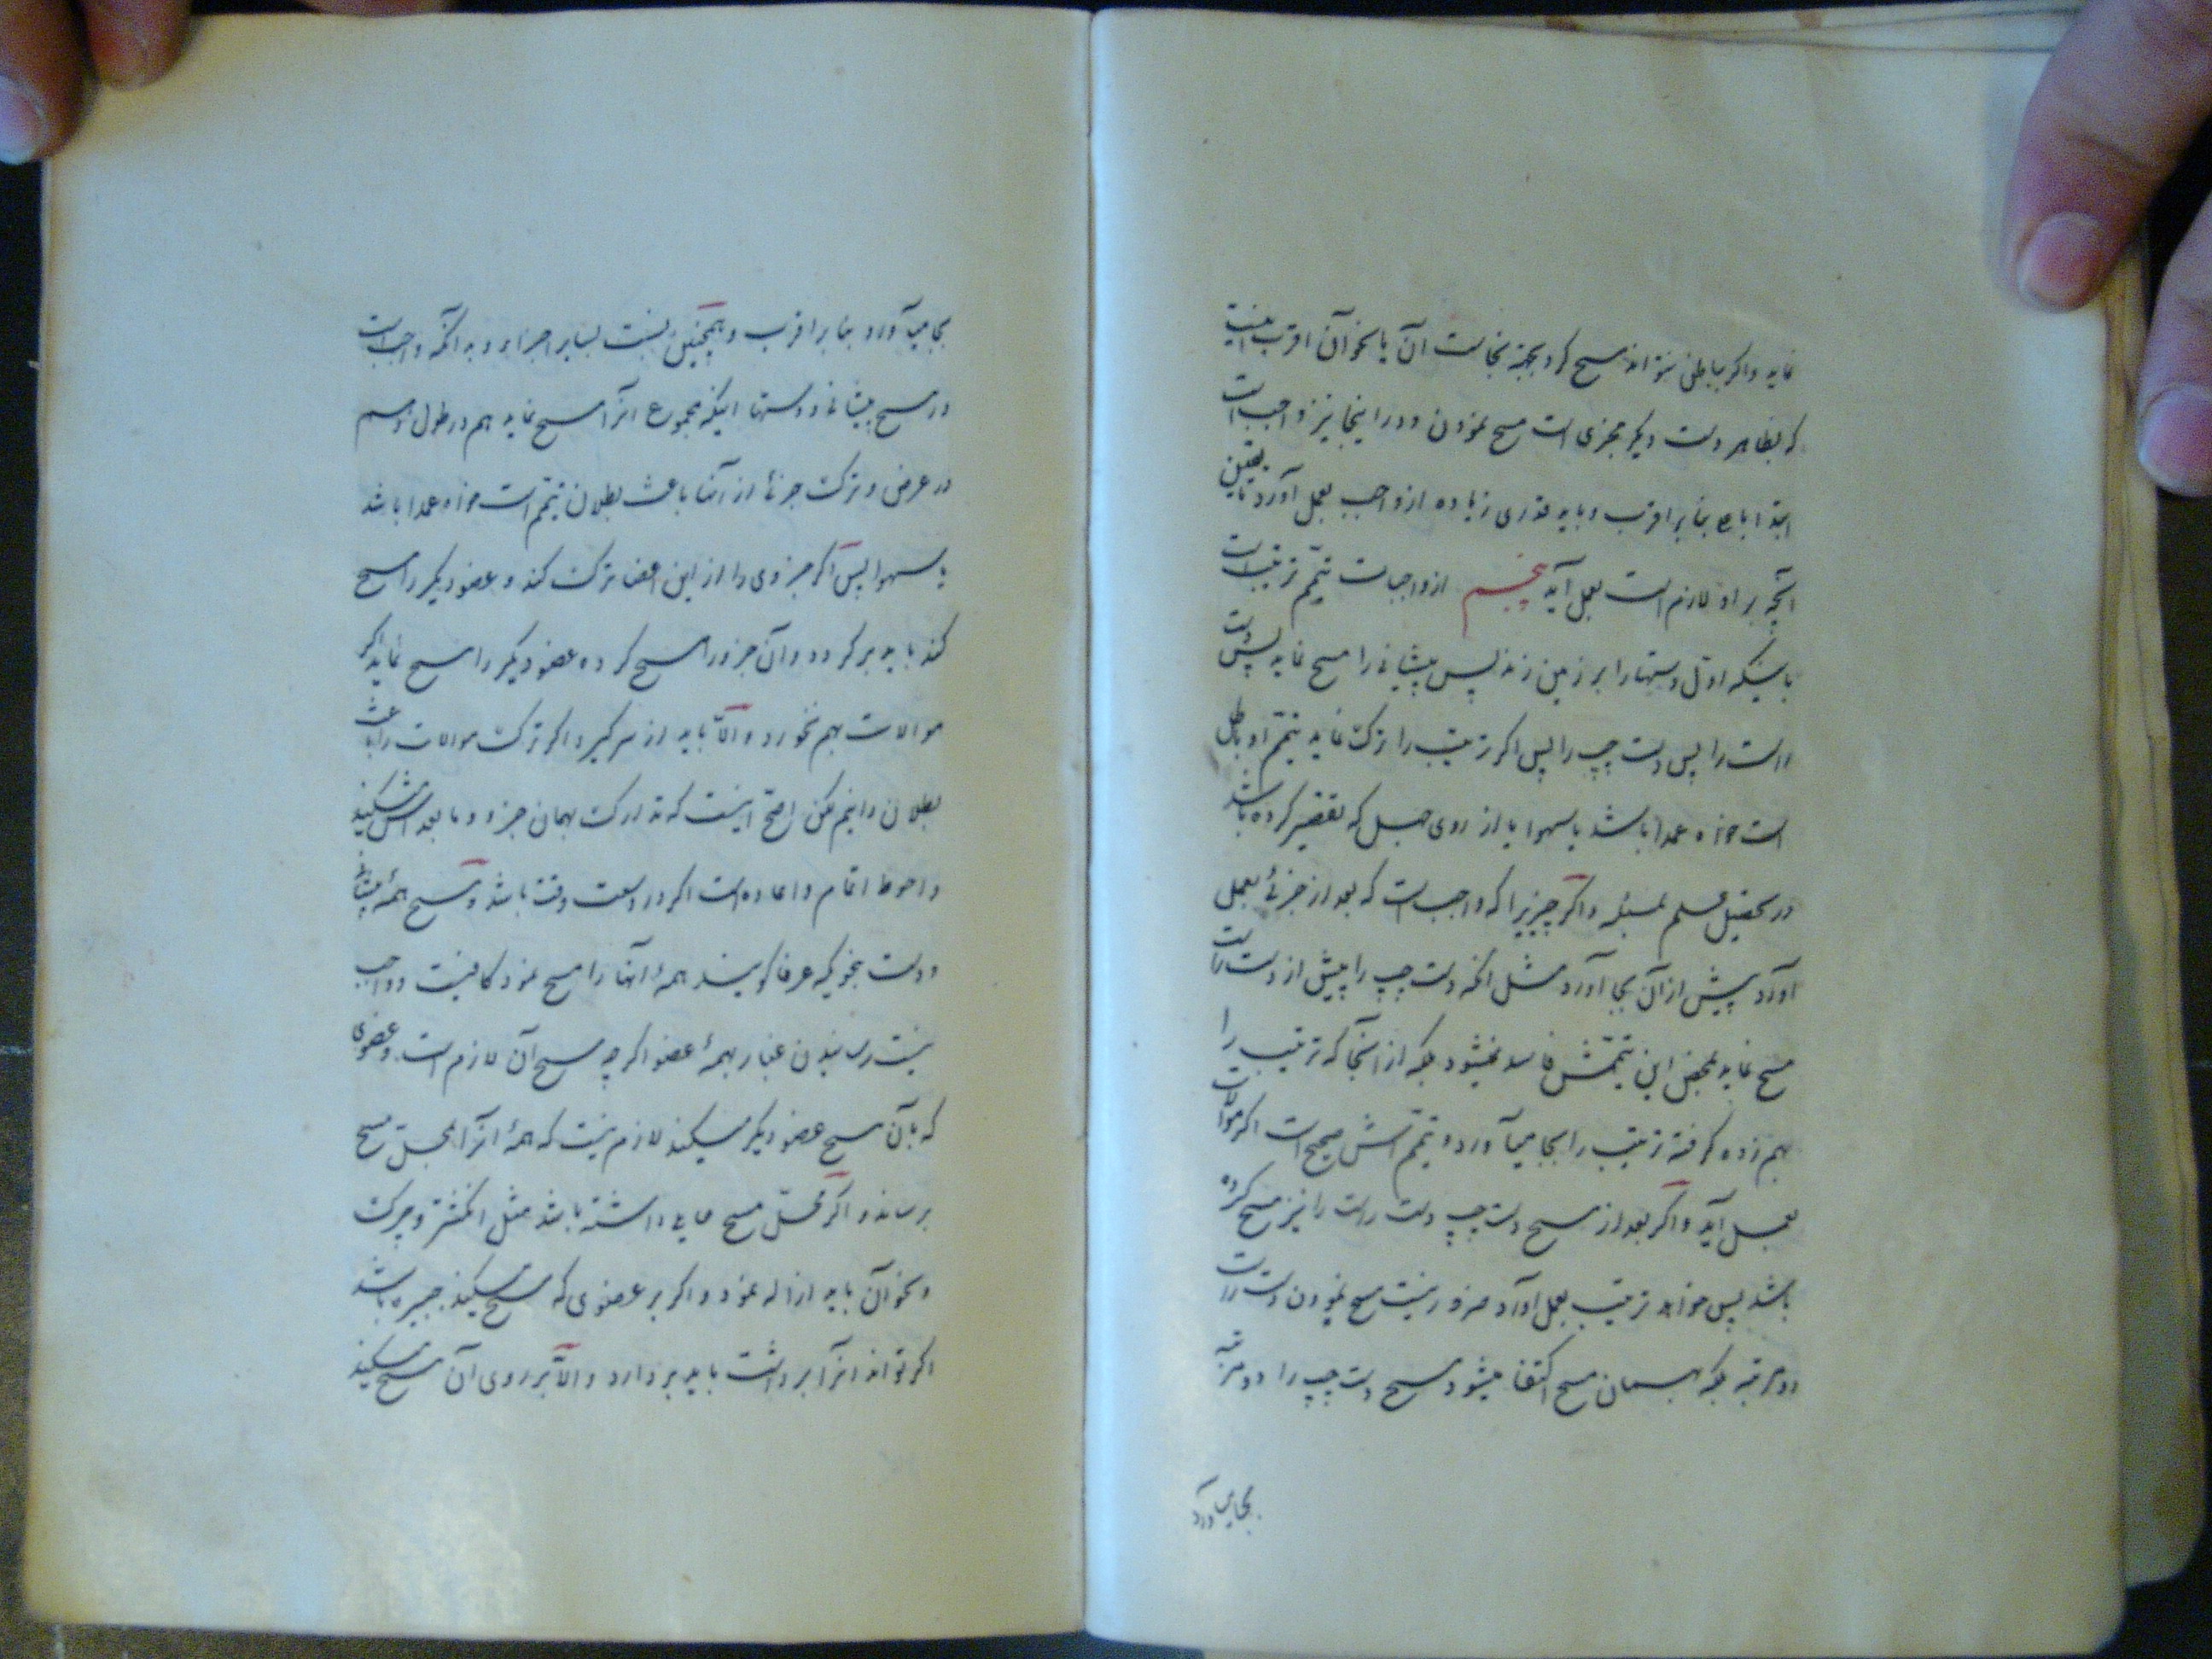 نماید و اگر بباطن نتواند مسح کرد بجهة نجاست آن یا نحو آن اقرب اینست
که بظاهر دست دیگر مجزی است مسح نمودن و در اینجا نیز واجب است
ابتدا باعلی بنابر اقرب و باید قدری زیاده از واجب بعمل آورد تا یقین
آنچه بر او لازم است بعمل آید پنجم از واجبات تیمّم ترتیب است
باینکه اوّل دستها را بر زمین زند پس پیشانی را مسح نماید پس دست
راست را پس دست چپ را پس اگر ترتیب را ترک نماید تیمّم او باطل
است خواه عمدا باشد یا سهوا یا از روی جهل که تقصیر کرده باشد
در تحصیل علم بمسئله و اگر چیزیرا که واجب است که بعد از جزئی بعمل
آورد پیش از آن بجا آورد مثل انکه دست چپ را پیش از دست راست
مسح نماید بمحض این تیمّمش فاسد نمیشود بلکه از آنجا که ترتیب را
بهم زده گرفته ترتیب را بجا میآورد و تیمّمش صحیح است اگر موالات
بعمل آید و اگر بعد از مسح دست چپ دست راست را نیز مسح کرده
باشد پس خواهد ترتیب بعمل آورد ضرور نیست مسح نمودن دست راست
دو مرتبه بلکه بهمان مسح اکتفا میشود و مسح دست چپ را دو مرتبه
بجا میآورد
بجا میآورد بنابر اقرب و همچنین نسبت بسایر اجزاء و بدانکه واجب است
در مسح پیشانی و دستها اینکه مجموع آنرا مسح نماید هم در طول و هم
در عرض و ترک جزئی از آنها باعث بطلان تیمّم است خواه عمدا باشد
یا سهوا پس اگر جزوی را از این اعضا ترک کند و عضو دیگر را مسح
کند باید برگردد و آن جزو را مسح کرده عضو دیگر را مسح نماید اگر
موالات بهم نخورد و الّا باید از سر گیرد اگر ترک موالات را باعث
بطلان دانیم لکن اصحّ اینست که تدارک همان جزو و ما بعدش میکند
و احوط اتمام و اعاده است اگر در وسعت وقت باشد و مسح همهٔ پیشانی
و دست بنحویکه عرفا گویند همهٔ آنها را مسح نمود کافیست و واجب
نیست رسانیدن غبار بهمهٔ عضو اگر چه مسح آن لازم است و عضوی
که بآن مسح عضو دیگر میکند لازم نیست که همهٔ آنرا بمحلّ مسح
برساند و اگر محلّ مسح حایلی داشته باشد مثل انگشتر و چرک
و نحو آن باید ازاله نمود و اگر بر عضوی که مسح میکند جبیره باشد
اگر تواند آنرا برداشت باید بردارد و الّا بر روی آن مسح میکند